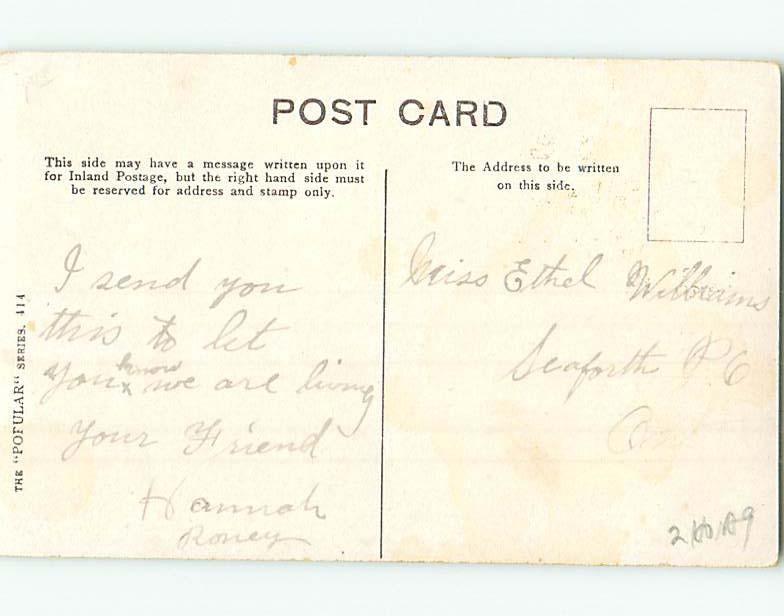 POST CARD
This side may have a message written upon it
for Inland Postage, but the right hand side must
be reserved for address and stamp only.
The Address to be written
on this side.
THE "POPULAR" SERIES. 414
I send you
this to let
you know we are living
Your Friend
Hannah
Roney
Miss Ethel Williams
Seaforth P O
Ont